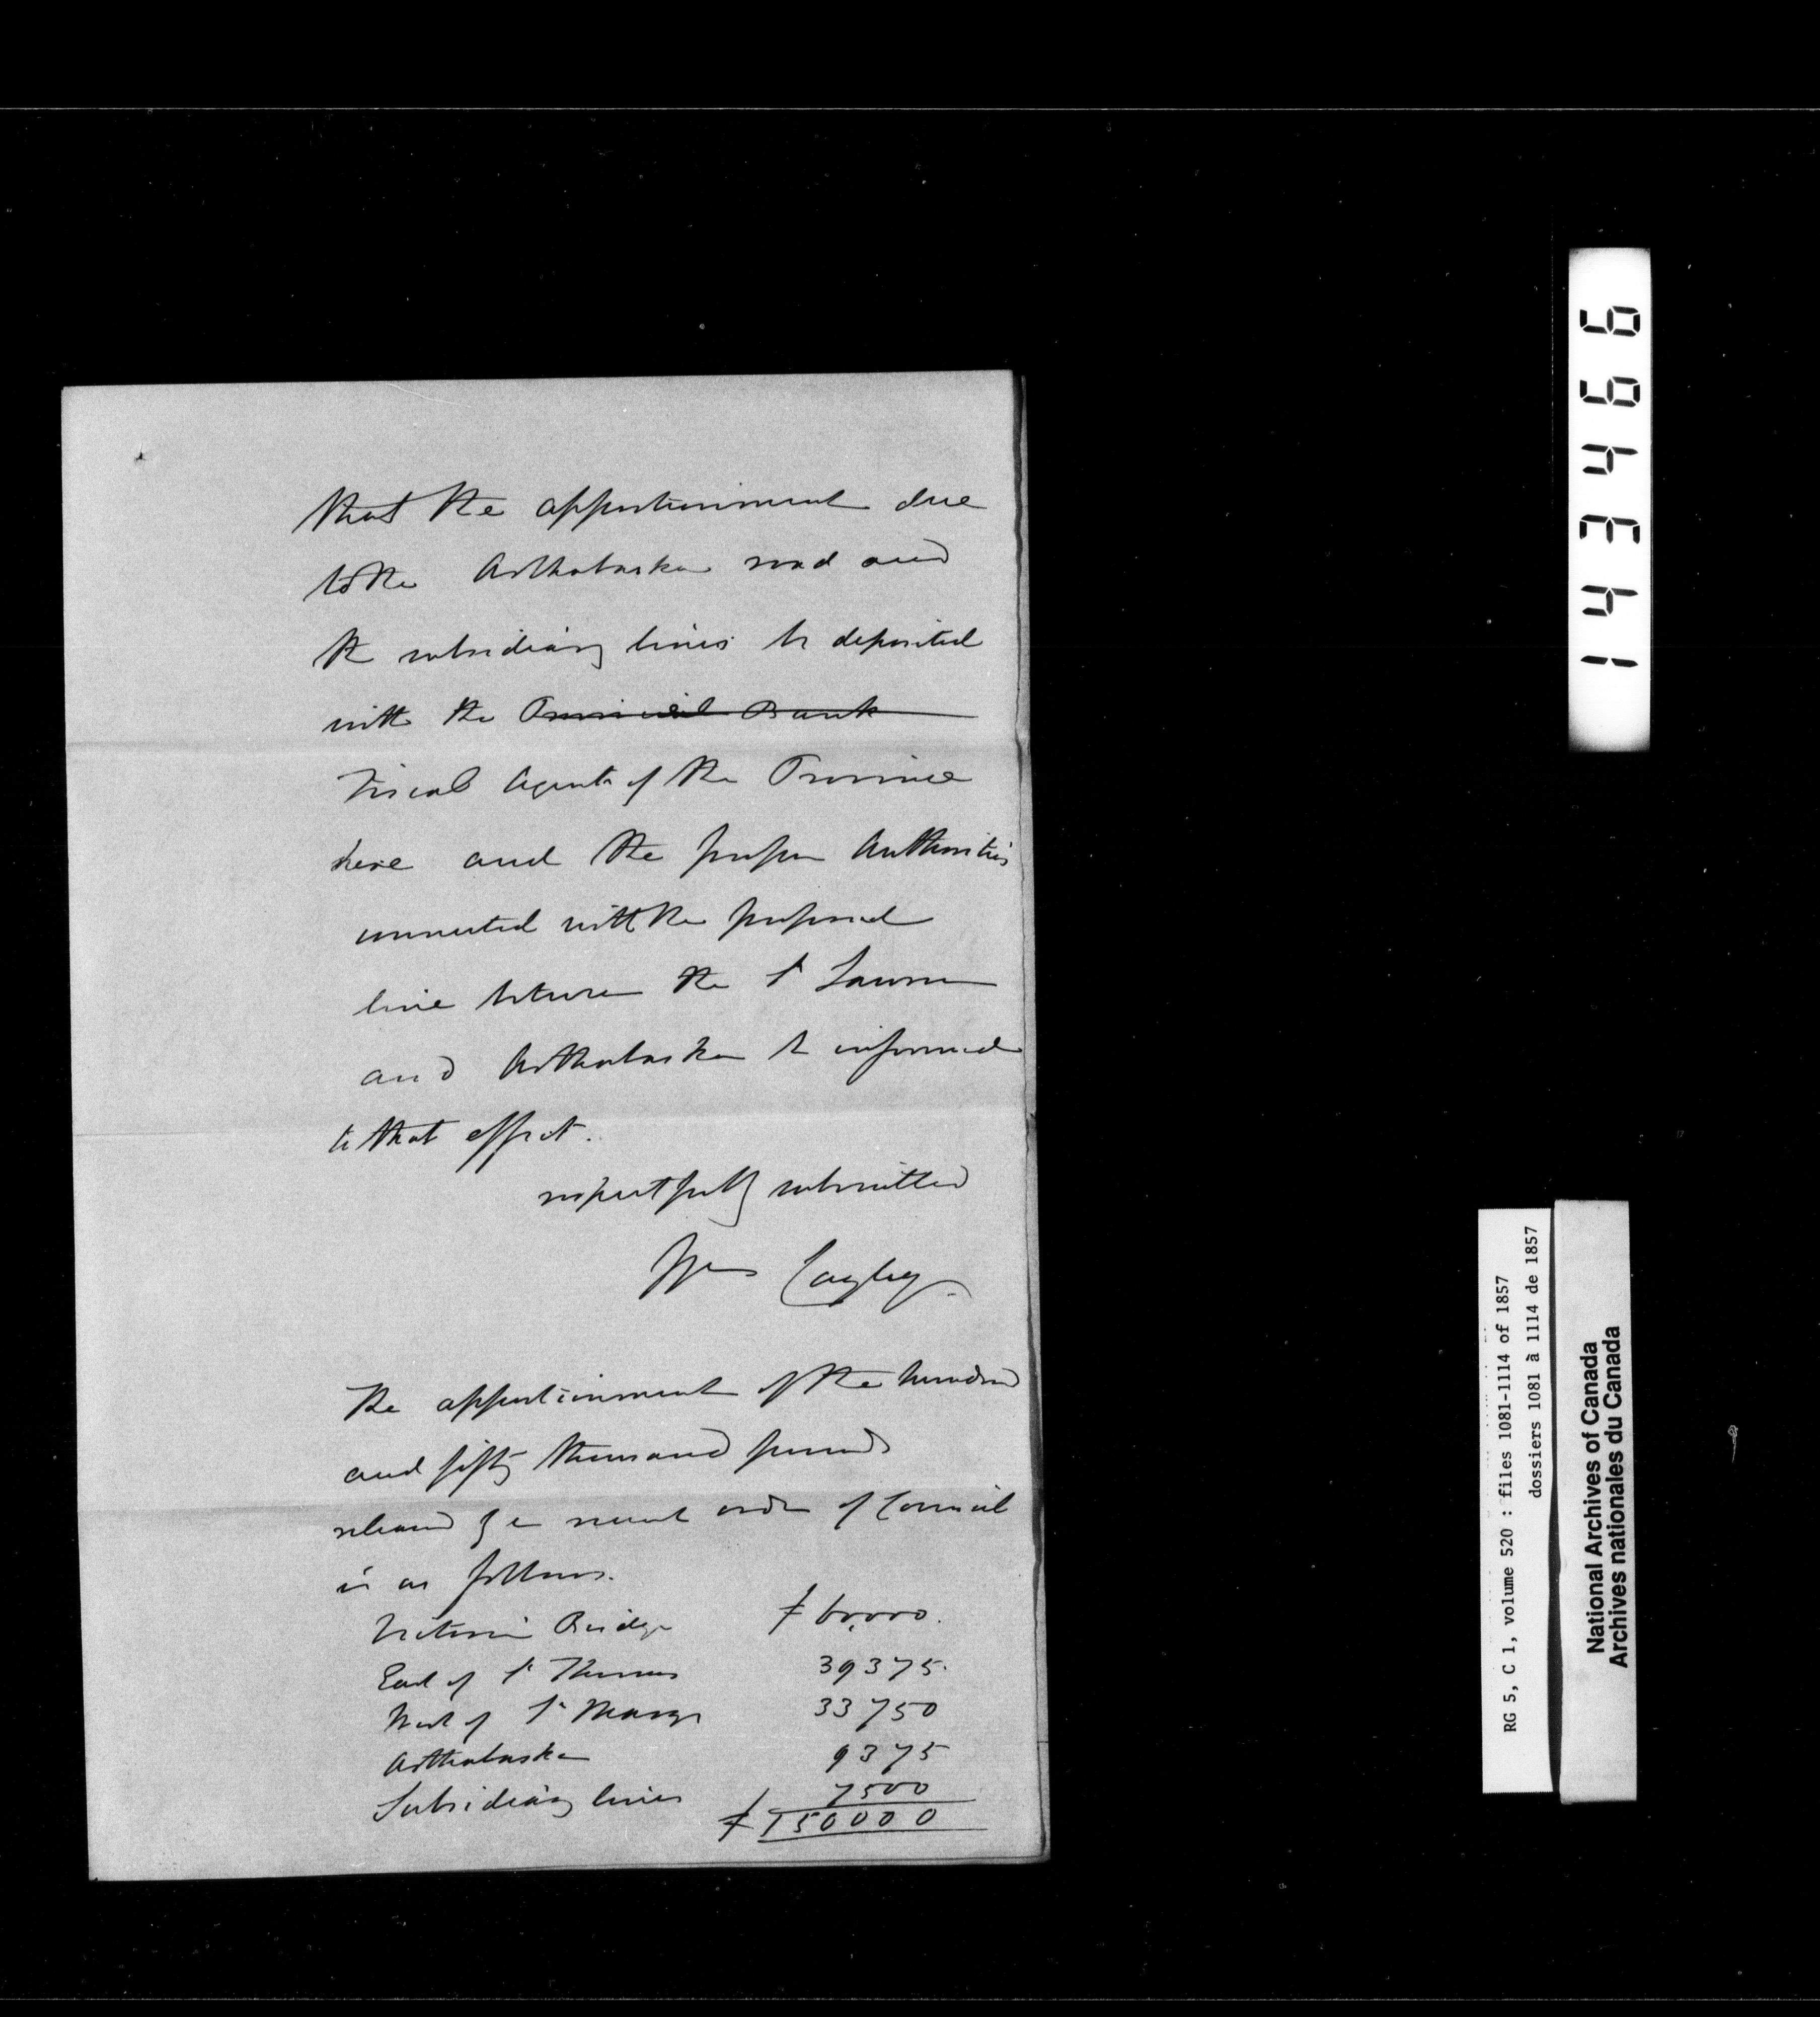 that the apportionment due
to the Arthabaska road and
the subsidiary lines be deposited
with the Provincial Bank
Fiscal Agents of the Province
here and the proper Authorities
connected with the proposed
line between the St Lawrence
and Arthabaska be informed
to that effect.
respectfully submitted
Wm Cayley
The apportionment of the hundred
and fifty thousand pounds
released by a recent order of Council
is as follows.
Victoria Bridge £60,000.
East of St Thomas 39375.
West of St Marys 33750
Arthabaska 9375
Subsidiary lines 7500
£150000
143466
RG 5, C 1, volume 520 : files 1081-1114 of 1857
dossiers 1081 à 1114 de 1857
National Archives of Canada
Archives nationales du Canada